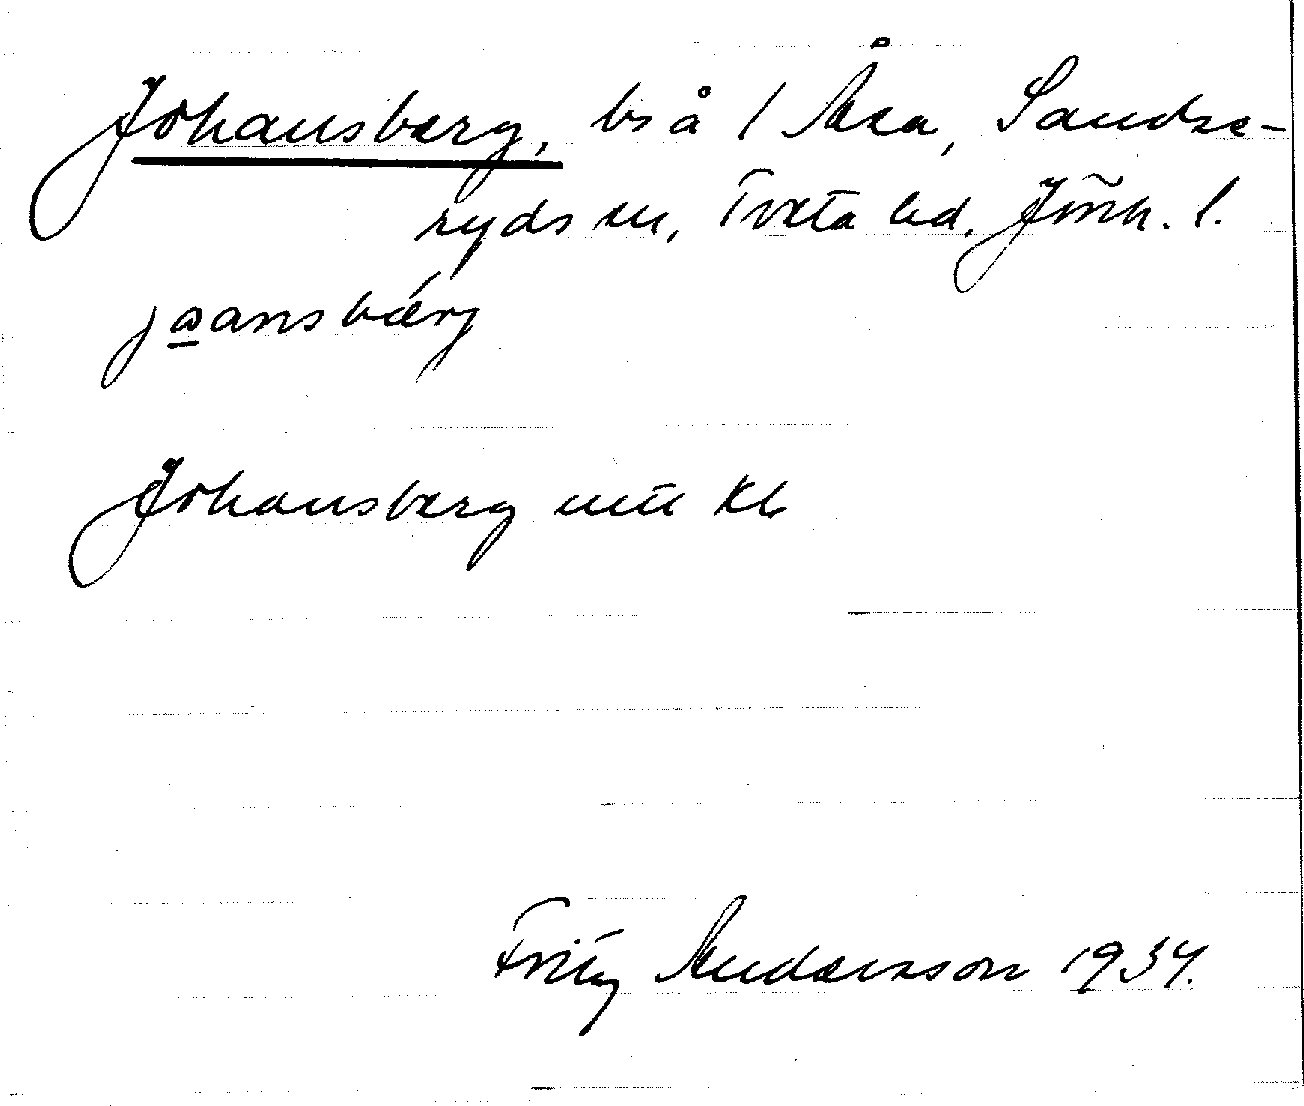 Johansberg, bs å 1 Åsa, Sandse-
ryds sn, Tveta hd, Jönk. l.
jaansbærg
Johansberg Kb
Fritz Andersson 1934.